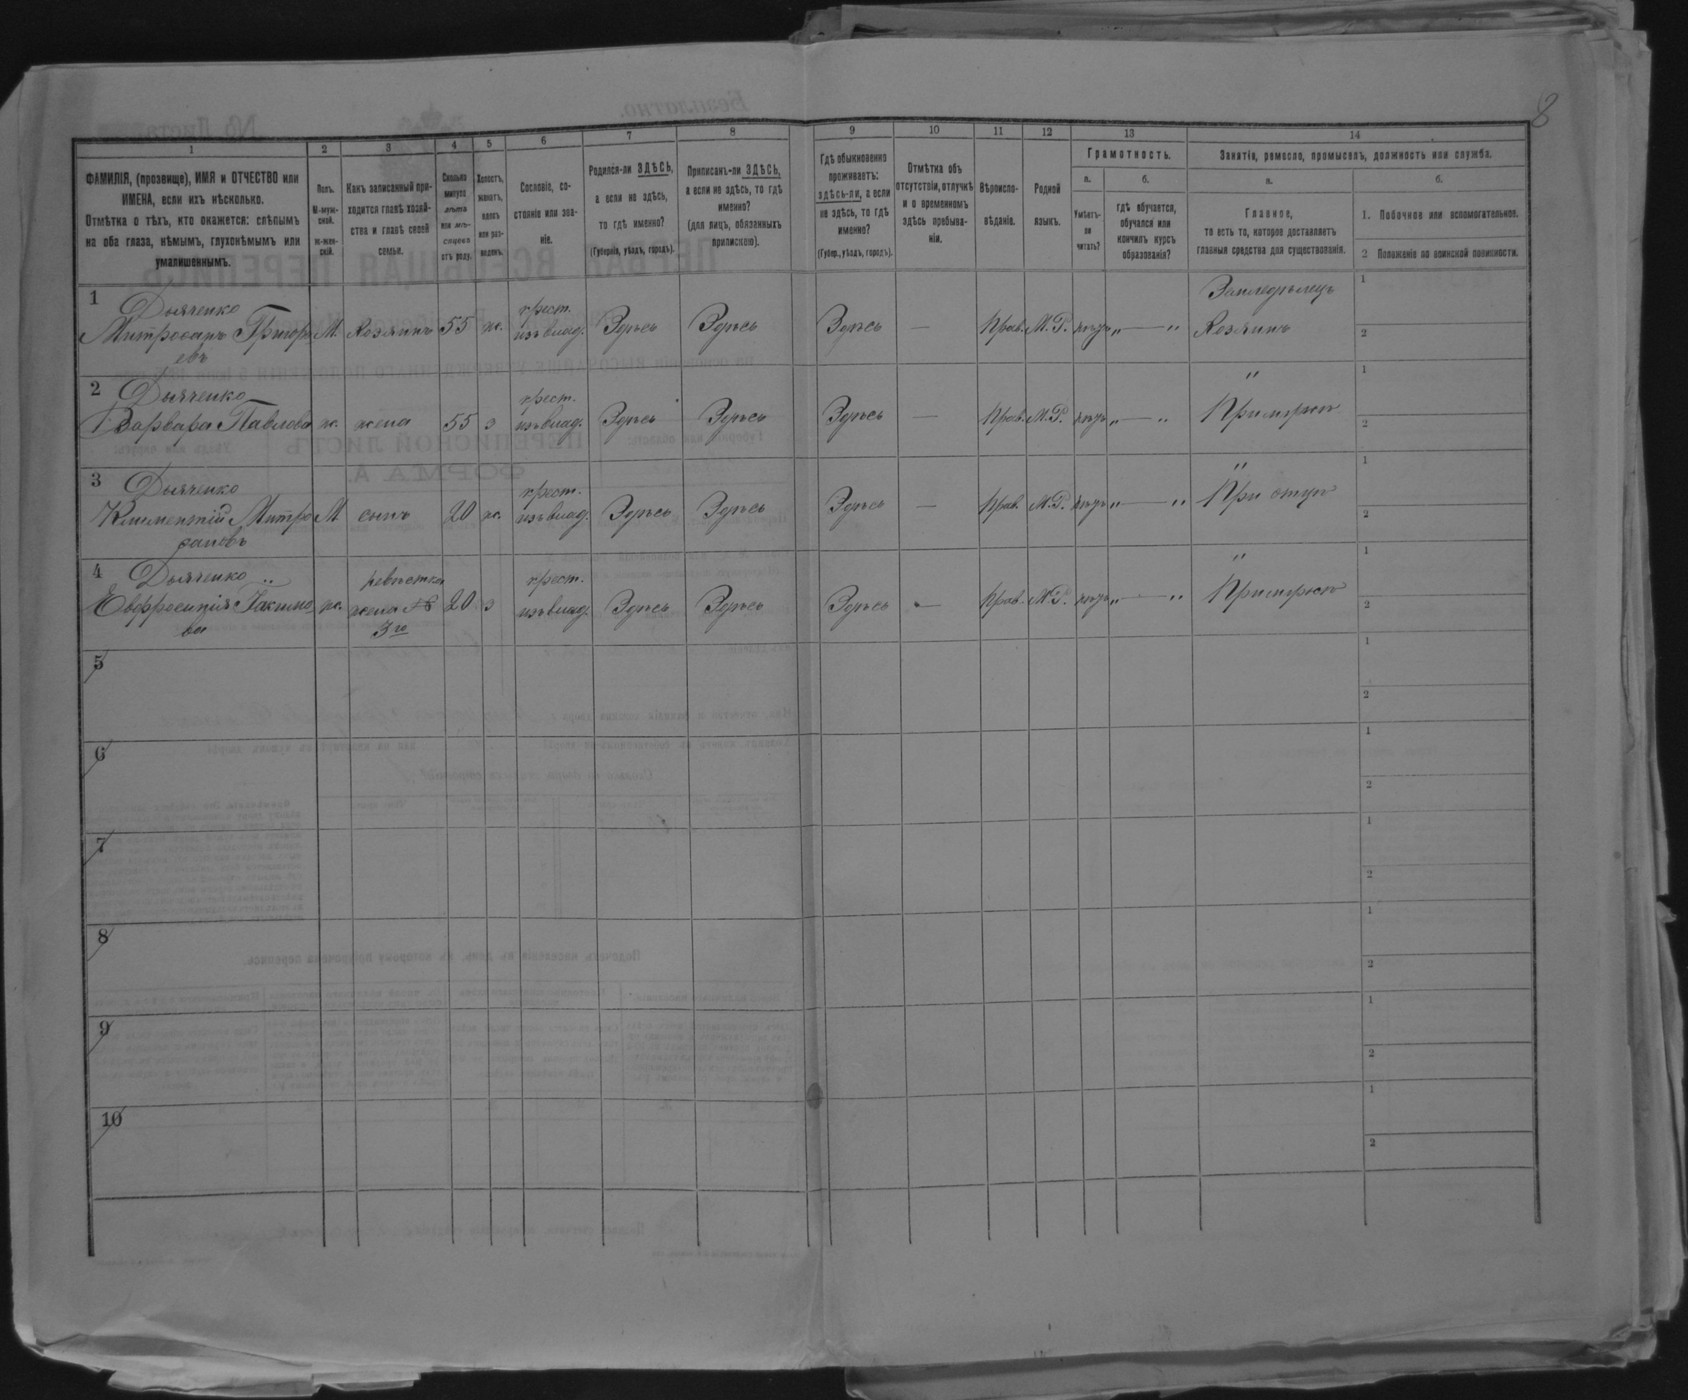 8
1 2 3 4 5 6 7 8 9 10 11 12 13 14
ФАМИЛІЯ, (прозвище), ИМЯ и ОТЧЕСТВО или
ИМЕНА, если ихъ нѣсколько.
Отмѣтка о тѣхъ, кто окажется: слѣпымъ
на оба глаза, нѣмымъ, глухонѣмымъ или
умалишеннымъ.
Полъ.
М-муж-
ской.
ж-жен-
скій.
Какъ записанный при-
ходится главѣ хозяй-
ства и главѣ своей
семьи.
Сколько
минуло
лѣтъ
или мѣ-
сяцевъ
отъ роду.
Холостъ,
женатъ,
вдовъ
или раз-
веденъ.
Сословіе, со-
стояніе или зва-
ніе.
Родился-ли ЗДѢСЬ,
а если не здѣсь,
то гдѣ именно?
(Губернія, уѣздъ, городъ).
Приписанъ-ли ЗДѢСЬ,
а если не здѣсь, то гдѣ
именно?
(для лицъ, обязанныхъ
припискою).
Гдѣ обыкновенно
проживаетъ:
здѣсь-ли, а если
не здѣсь, то гдѣ
именно?
(Губер., уѣздъ, городъ).
Отмѣтка объ
отсутствіи, отлучкѣ
и о временномъ
здѣсь пребыва-
ніи.
Вѣроиспо-
вѣданіе.
Родной
языкъ.
Грамотность.
а.
Умѣетъ-
ли
читать?
б.
гдѣ обучается,
обучался или
кончилъ курсъ
образованія?
Занятія, ремесло, промыселъ, должность или служба.
а.
Главное,
то есть то, которое доставляетъ
главныя средства для существованія.
б.
1. Побочное или вспомогательное.
2 Положеніе по воинской повинности.
1 Дьяченко
Митрофанъ Григорь М. Хозяинъ 55 ж. крест. изъ влад. Здѣсь Здѣсь Здѣсь — Прав. М.Р. нѣтъ „ — „ Земледѣлецъ Хозяинъ 1
евъ 2
2 Дьяченко
Варвара Павлова ж. жена 55 з крест. изъ влад. Здѣсь Здѣсь Здѣсь — Прав. М.Р. нѣтъ „ — „ „ При мужѣ 1
2
3 Дьяченко
Климентій Митро М сынъ 20 ж. крест. изъ влад. Здѣсь Здѣсь Здѣсь — Прав. М.Р. нѣтъ „ — „ „ При отцѣ 1
фановъ 2
4 Дьяченко „ невѣстка
Евфросинія Іакимо ж. жена № 20 з крест. изъ влад. Здѣсь Здѣсь Здѣсь — Прав. М.Р. нѣтъ „ — „ „ При мужѣ 1
ва 3го 2
5 1
2
6 1
2
7 1
2
8 1
2
9 1
2
10 1
2